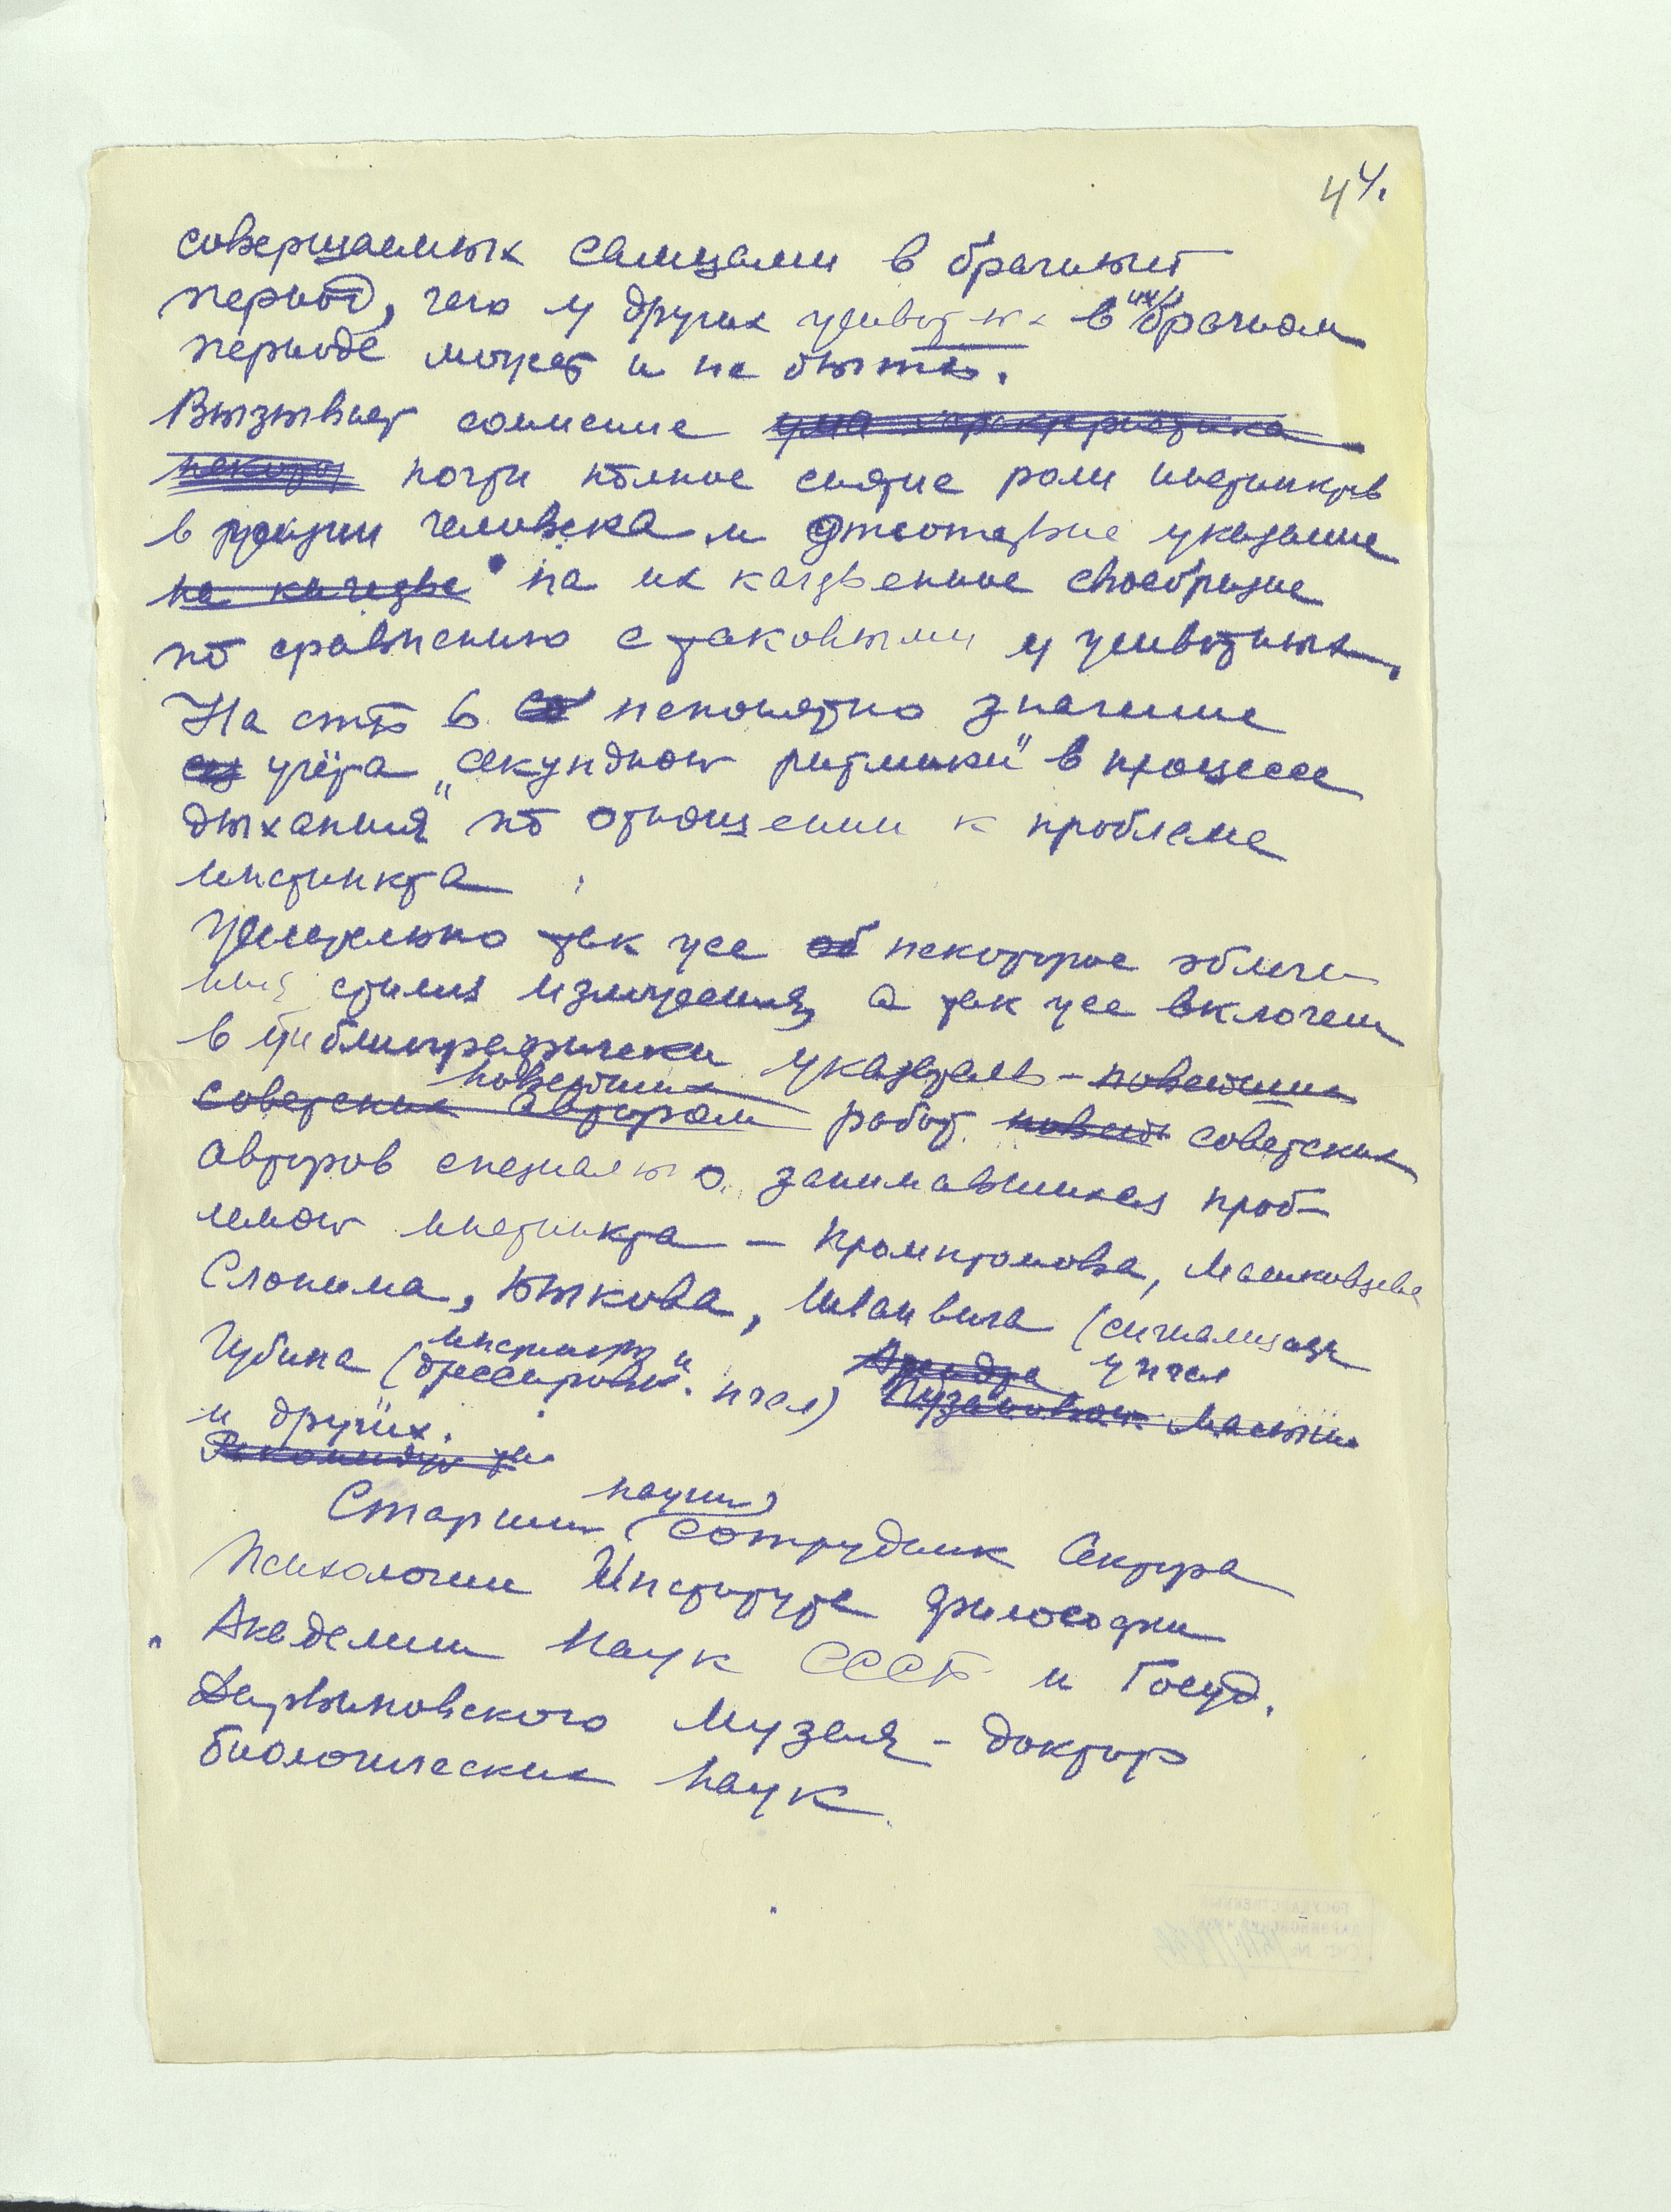 44.
совершаемых самцами в брачный
период, чего у других животных в их брачном
периоде может и не быть.
Вызывает сомнение ~~характеристика~~
почти полное снятие роли инстинктов
в жизни человека и отсутствие указание
~~на качестве~~ на их качественное своебразие
по сравнению с таковыми у животных.
На стр 6 непонятно значение
учёта „секундной ритмики" в процессе
дыхания" по отношении к проблеме
инстинкта
Желательно так же некоторое облегче-
ния стиля изложения, а так же включении
в библиографически указатель – ~~новейших~~
~~новейших~~
~~советских авторам~~ работ ~~новей~~ советских
авторов специально занимавшихся проб-
лемой инстинкта – Промптова, Машковцева
Слонима, Быкова, (сигнализация
Губина (дрессировки пчел) у пчел
инстинкт и
и других.
~~Рекоменду~~
научн
Старший сотрудник Сектора
Психологии Института философии
Академии Наук СССР и Госуд.
Дарвиновского Музея – доктор
биологических наук.